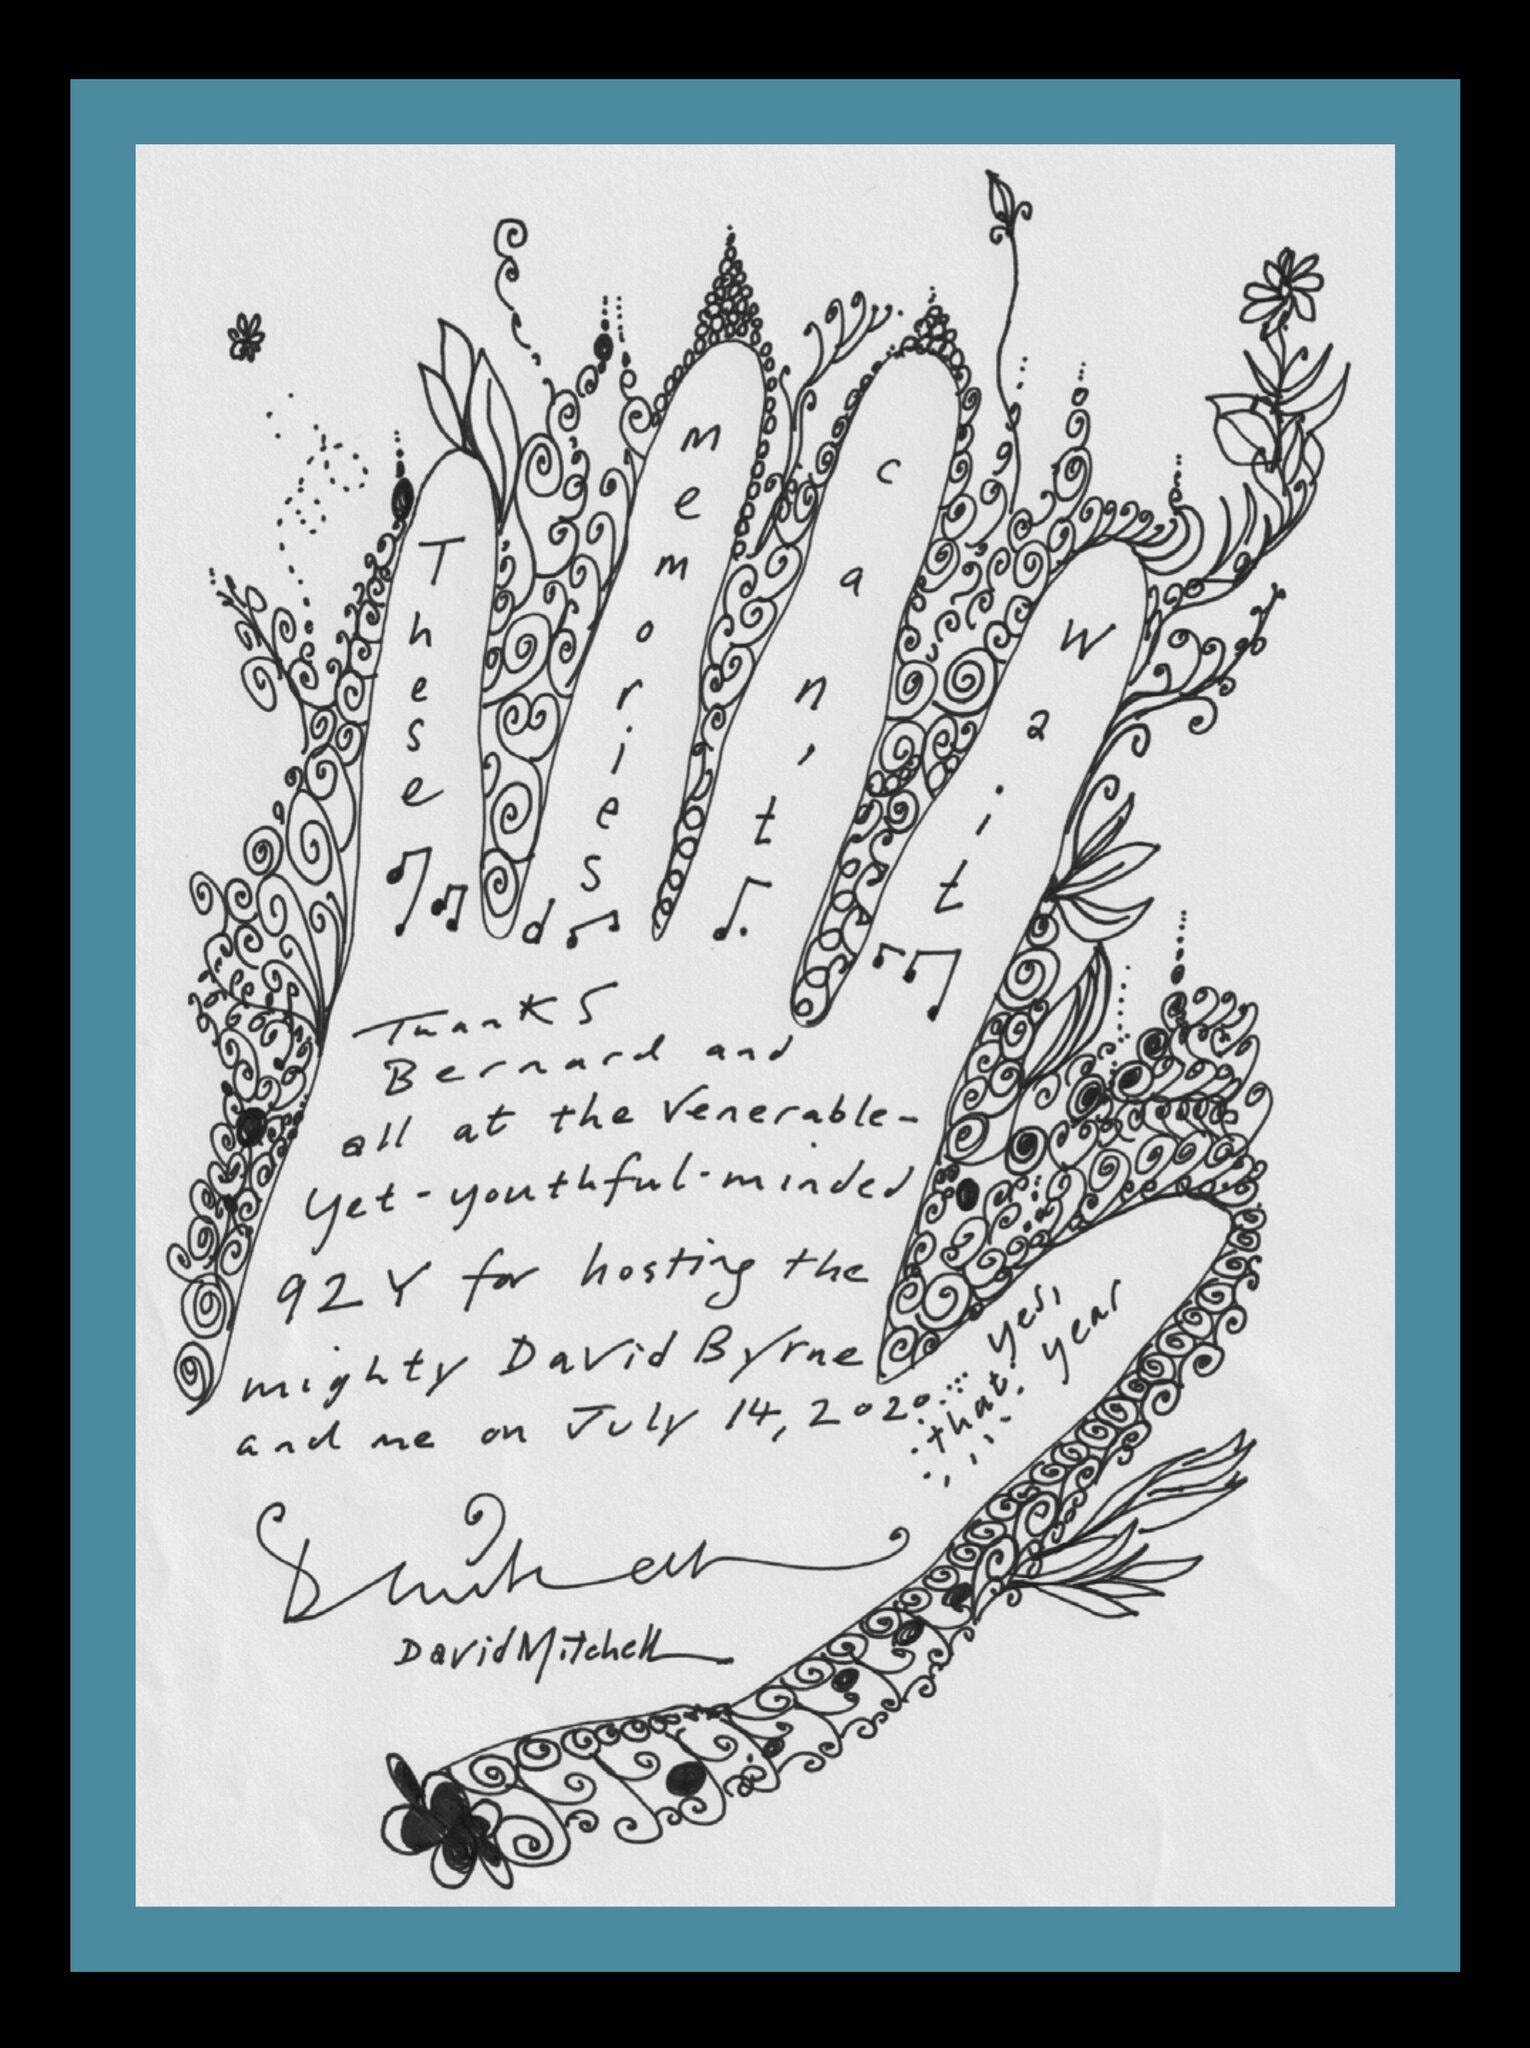 These
memories
can't
wait
Thanks
Bernard and
all at the venerable-
yet-youthful-minded
92Y for hosting the
mighty David Byrne
and me on July 14, 2020... yes,
that year
David Mitchell